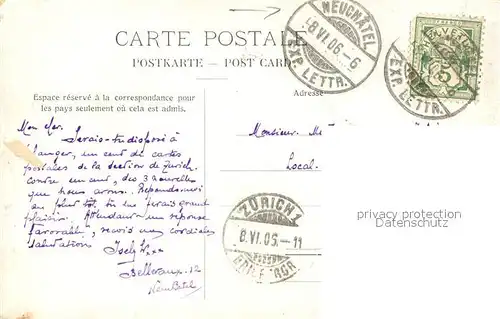 CARTE POSTALE
POSTKARTE — POST CARD
NEUCHÂTEL
8.VI.06.-6
EXP. LETTR.
EXP. LETTR.
5
Espace réservé à la correspondance pour
les pays seulement où cela est admis.
Adresse
Mon cher.
Serais-tu disposé à
changer, un cent de cartes
postales de la section de Zurich.
contre un cent, des 3 nouvelles
que nous avons. Réponds-moi
au plus tôt. tu me ferais grand
plaisir. Attendant une réponse
favorable, reçois mes cordiales
salutations
Bellevaux. 12
Neuchâtel
Monsieur.
Local.
ZÜRICH 1
8.VI.06.-11
privacy protection
Datenschutz